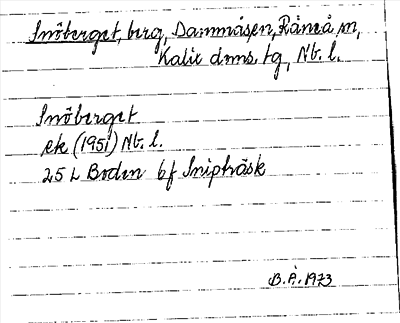 Snöberget, berg, Dammåsen, Råneå sn,
Kalix dms. tg, Nb. l.
Snöberget
ek (1951) Nb. l.
25 L Boden bf Sniptråsk
B. Å. 1973